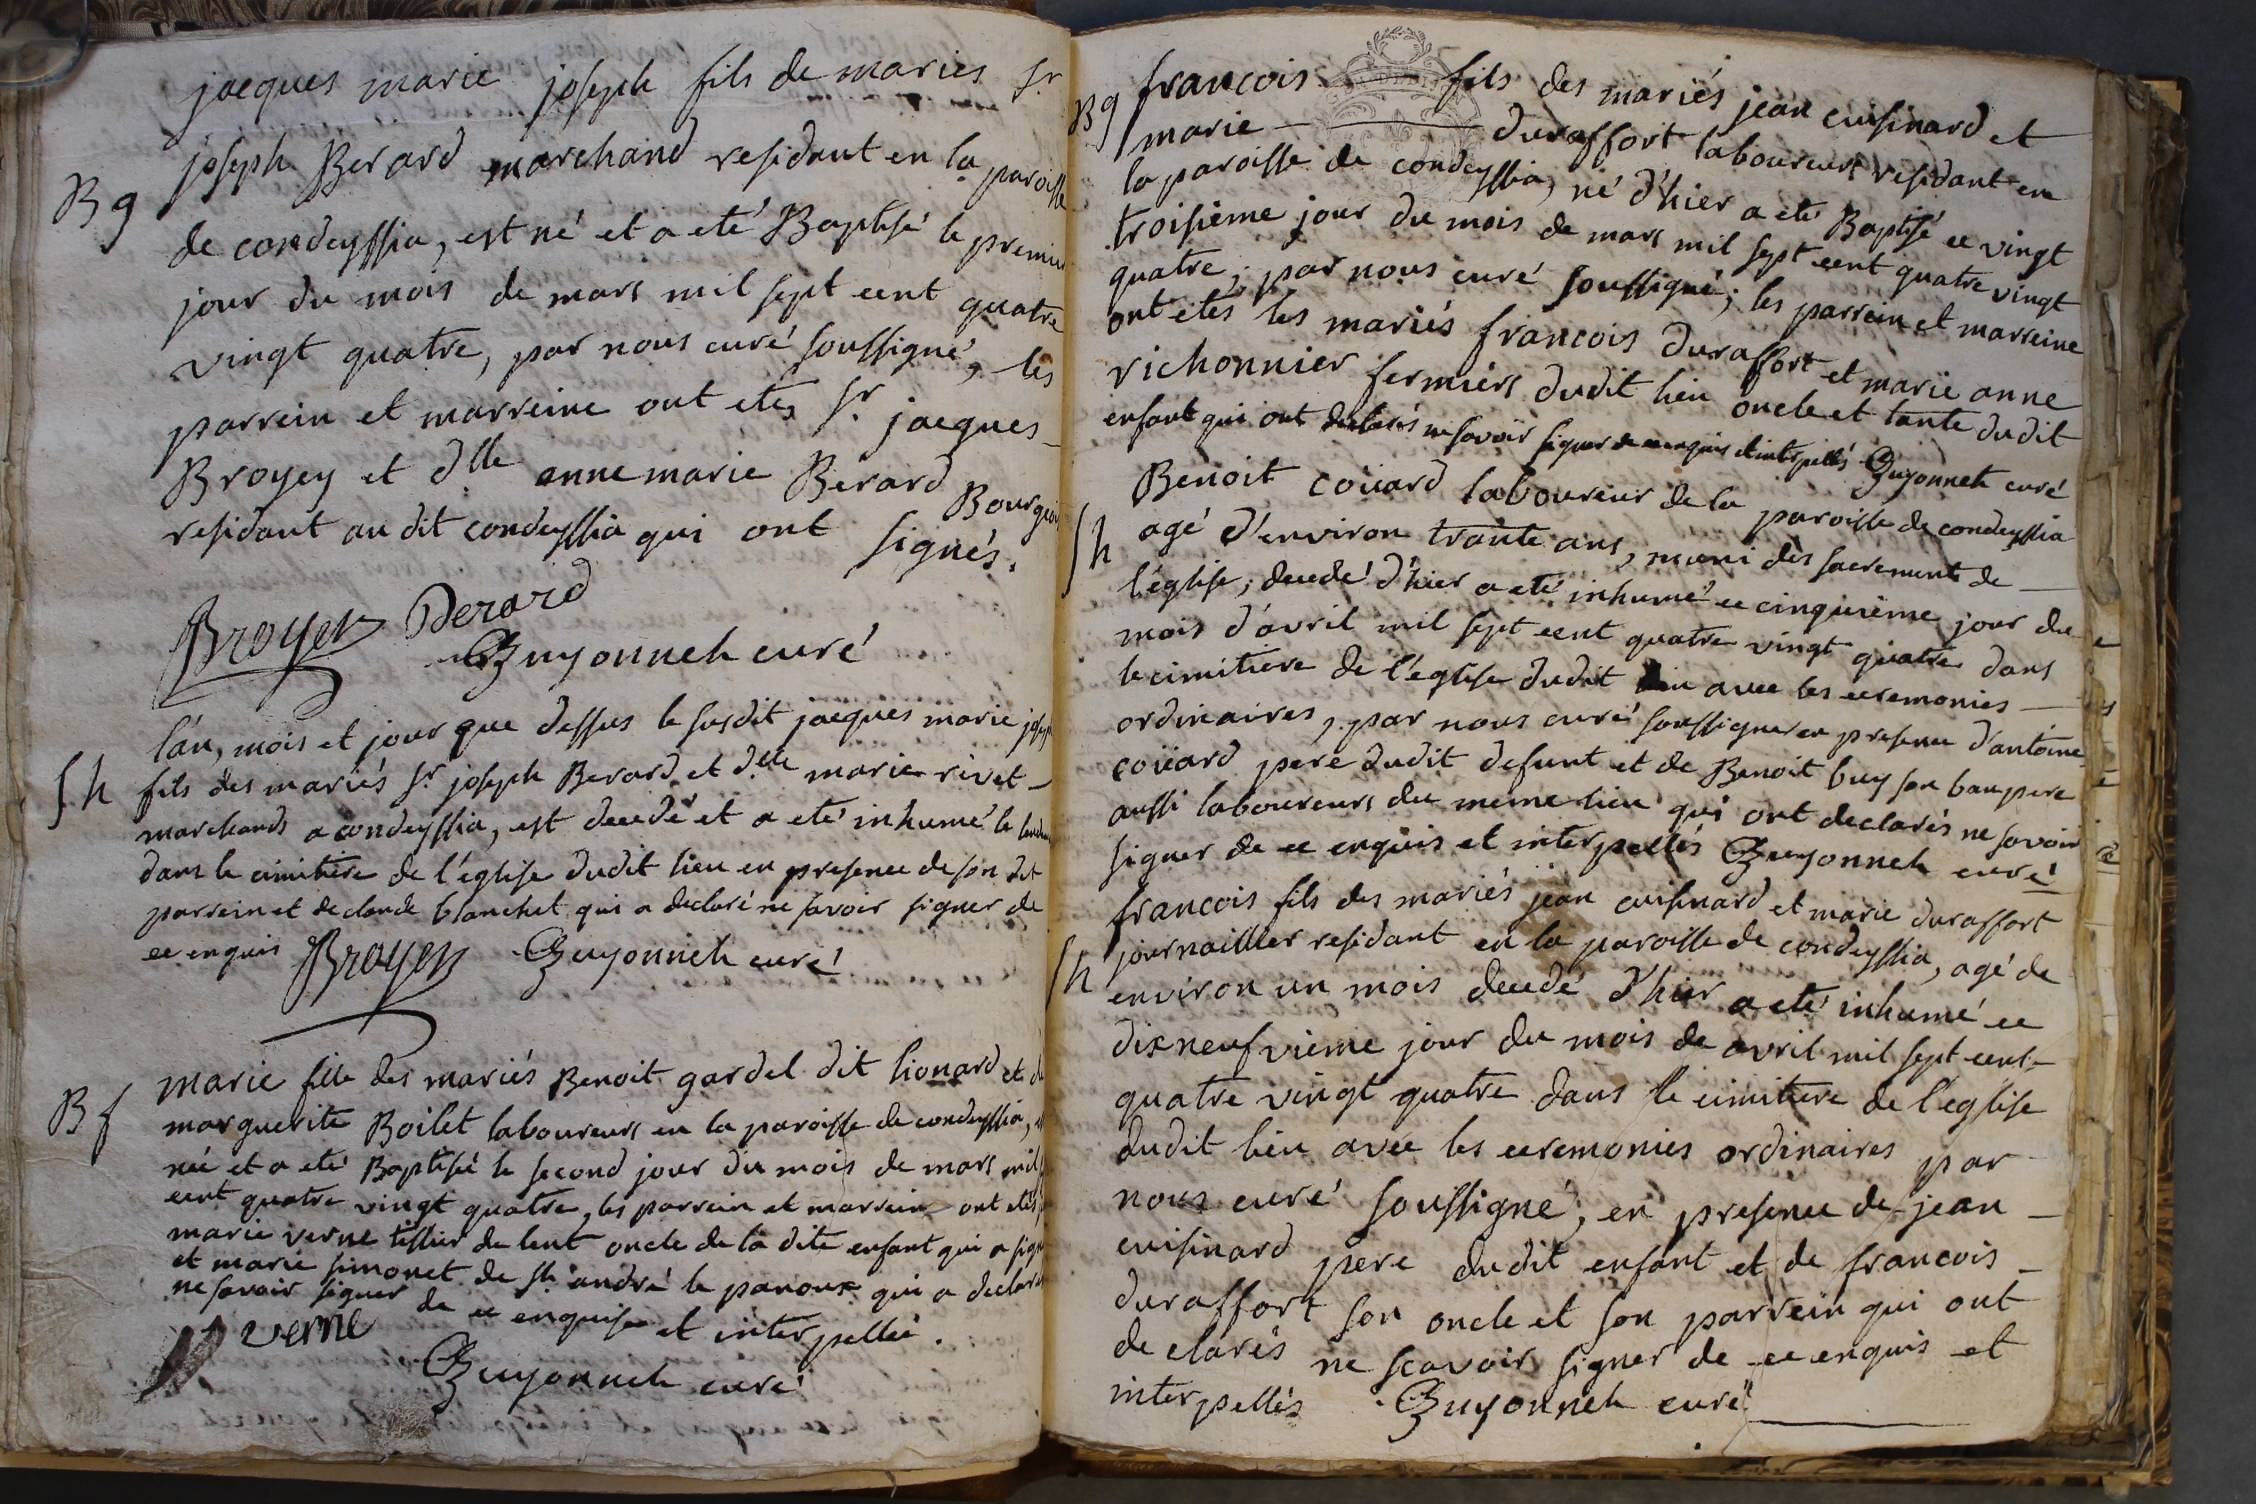 jacques marie joseph fils de mariés Sr
joseph Berard marchand residant en la paroisse
Bg
de condeyssia, est né et a eté Baptisé le premier
jour du mois de mars mil sept cent quatre
vingt quatre, par nous curé soussigné, les
parrein et marreine ont etes Sr jacques
Broyer et dlle anne marie Berard Bourgeois
residant au dit condeyssia qui ont signés.
Broyer Berard
Guyonnet curé
l'an, mois et jour que dessus le susdit jacques marie joseph
Sh
fils des mariés Sr joseph Berard et dlle marie rivet
marchands a condeyssia, est decedé et a eté inhumé le
dans le cimitière de l'église dudit lieu en presence de son dit
parrein et de claude blanchet qui a declaré ne savoir signer de
ce enquis Broyer Guyonnet curé
Bf
marie fille des mariés Benoit gardel dit lionard et de
marguerite Boilet laboureurs en la paroisse de condeyssia,
née et a eté Baptisé le second jour du mois de mars mil
cent quatre vingt quatre, les parrein et marrein ont etés
marie verne tissier de lent oncle de la dite enfant qui a signé
et marie simonet de st andré le panoux qui a declaré
ne savoir signer de ce enquise et interpellée.
verne
Guyonnet curé
Bg
francois fils des mariés jean cuisinard et
marie duraffort laboureurs residant en
la paroisse de condeyssia, né d'hier a eté Baptisé ce vingt
troisième jour du mois de mars mil sept cent quatre vingt
quatre, par nous curé soussigné; les parrein et marreine
ont etés les mariés francois duraffort et marie anne
richonnier fermiers dudit lieu oncle et tante dudit
enfant qui ont declarés ne savoir signer de ce enquis et interpellés Guyonnet curé
Benoit coüard laboureur de la paroisse de condeyssia
Sh
agé d'environ trante ans, muni des sacrements de
l'église, decedé d'hier a eté inhumé ce cinquième jour du
mois d'avril mil sept cent quatre vingt quatre dans
le cimitiere de l'église dudit lieu avec les ceremonies
ordinaires, par nous curé soussigné en presence d'antoine
coüard pere dudit defunt et de Benoit buy son baupere
aussi laboureurs du meme lieu qui ont declarés ne savoir
signer de ce enquis et interpellés Guyonnet curé
francois fils des mariés jean cuisinard et marie duraffort
Sh
journaillier residant en la paroisse de condeyssia, agé de
environ un mois decedé d'hier a eté inhumé ce
dixneufvieme jour du mois de avril mil sept cent
quatre vingt quatre dans le cimitiere de l'église
dudit lieu avec les ceremonies ordinaires par
nous curé soussigné, en presence de jean
cuisinard pere dudit enfant et de francois
duraffort son oncle et son parrein qui ont
declarés ne scavoir signer de ce enquis et
interpellés Guyonnet curé